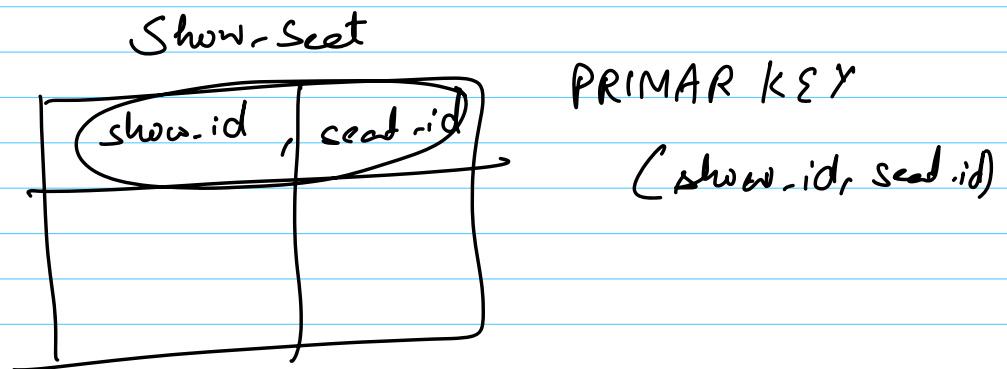 Show_Seat
show_id, seat_id
PRIMAR KEY
(show_id, seat_id)